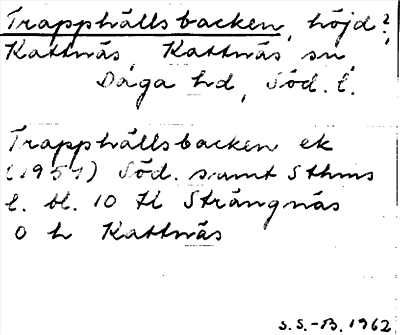 Trapphällsbacken, höjd?,
Kattnäs, Kattnäs sn,
Daga hd, Söd. l.
Trapphällsbacken ek
(1951) Söd. samt Sthms
l. bl. 10 Il Strängnäs
o h Kattnäs
S.S.-B. 1962